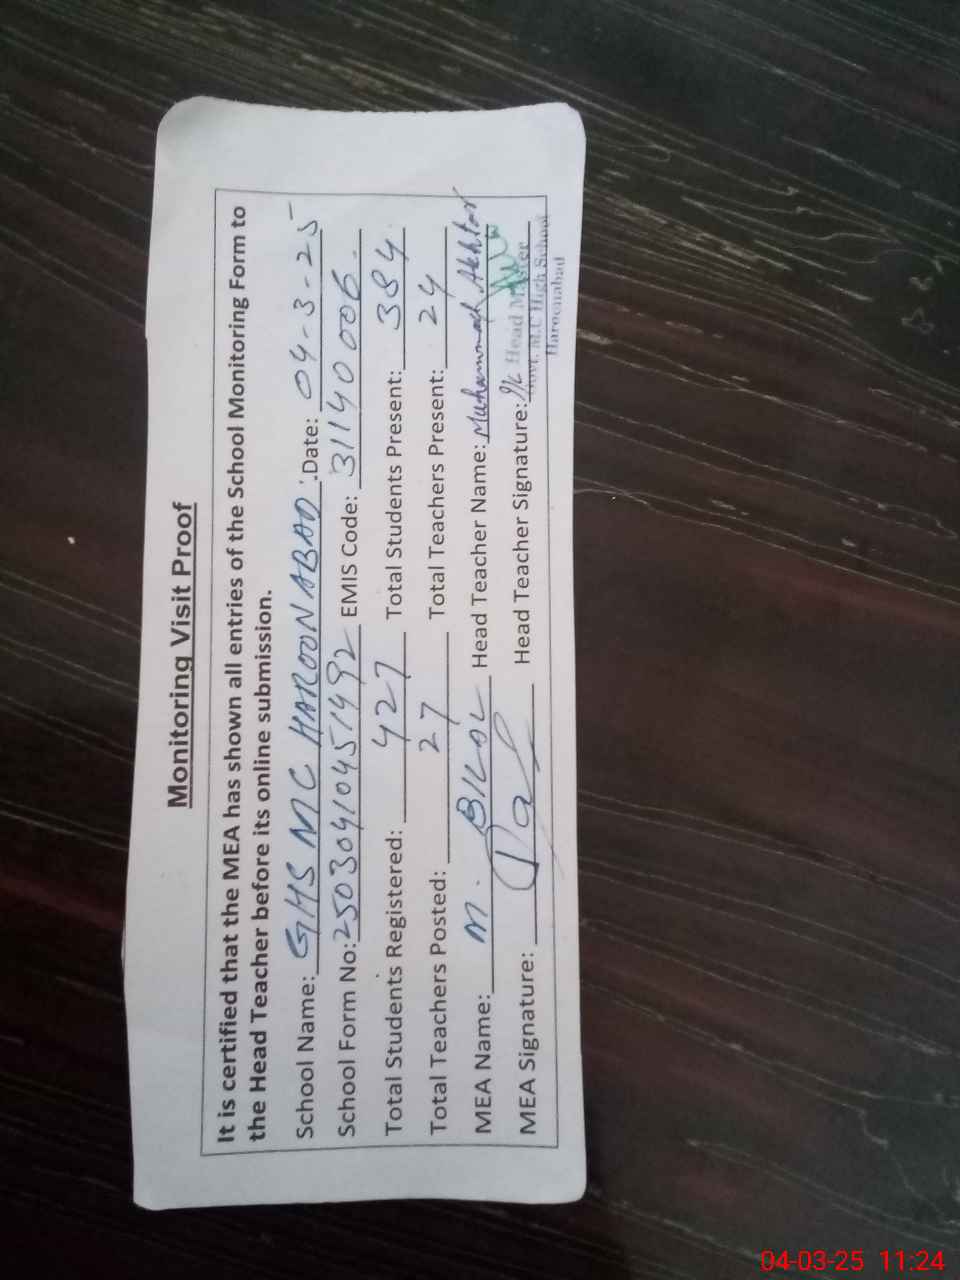 Monitoring Visit Proof
It is certified that the MEA has shown all entries of the School Monitoring Form to
the Head Teacher before its online submission.
School Name: GHS MC HAROONABAD. Date: 04-3-25
School Form No: 25030410451492 EMIS Code: 31140006.
Total Students Registered: 427 Total Students Present: 384
Total Teachers Posted: 27 Total Teachers Present: 24
MEA Name: M. BILAL Head Teacher Name: Muhammad Akhtar
MEA Signature: Head Teacher Signature: I/C Head Master
Govt. M.C High School
Haroonabad
04-03-25 11:24